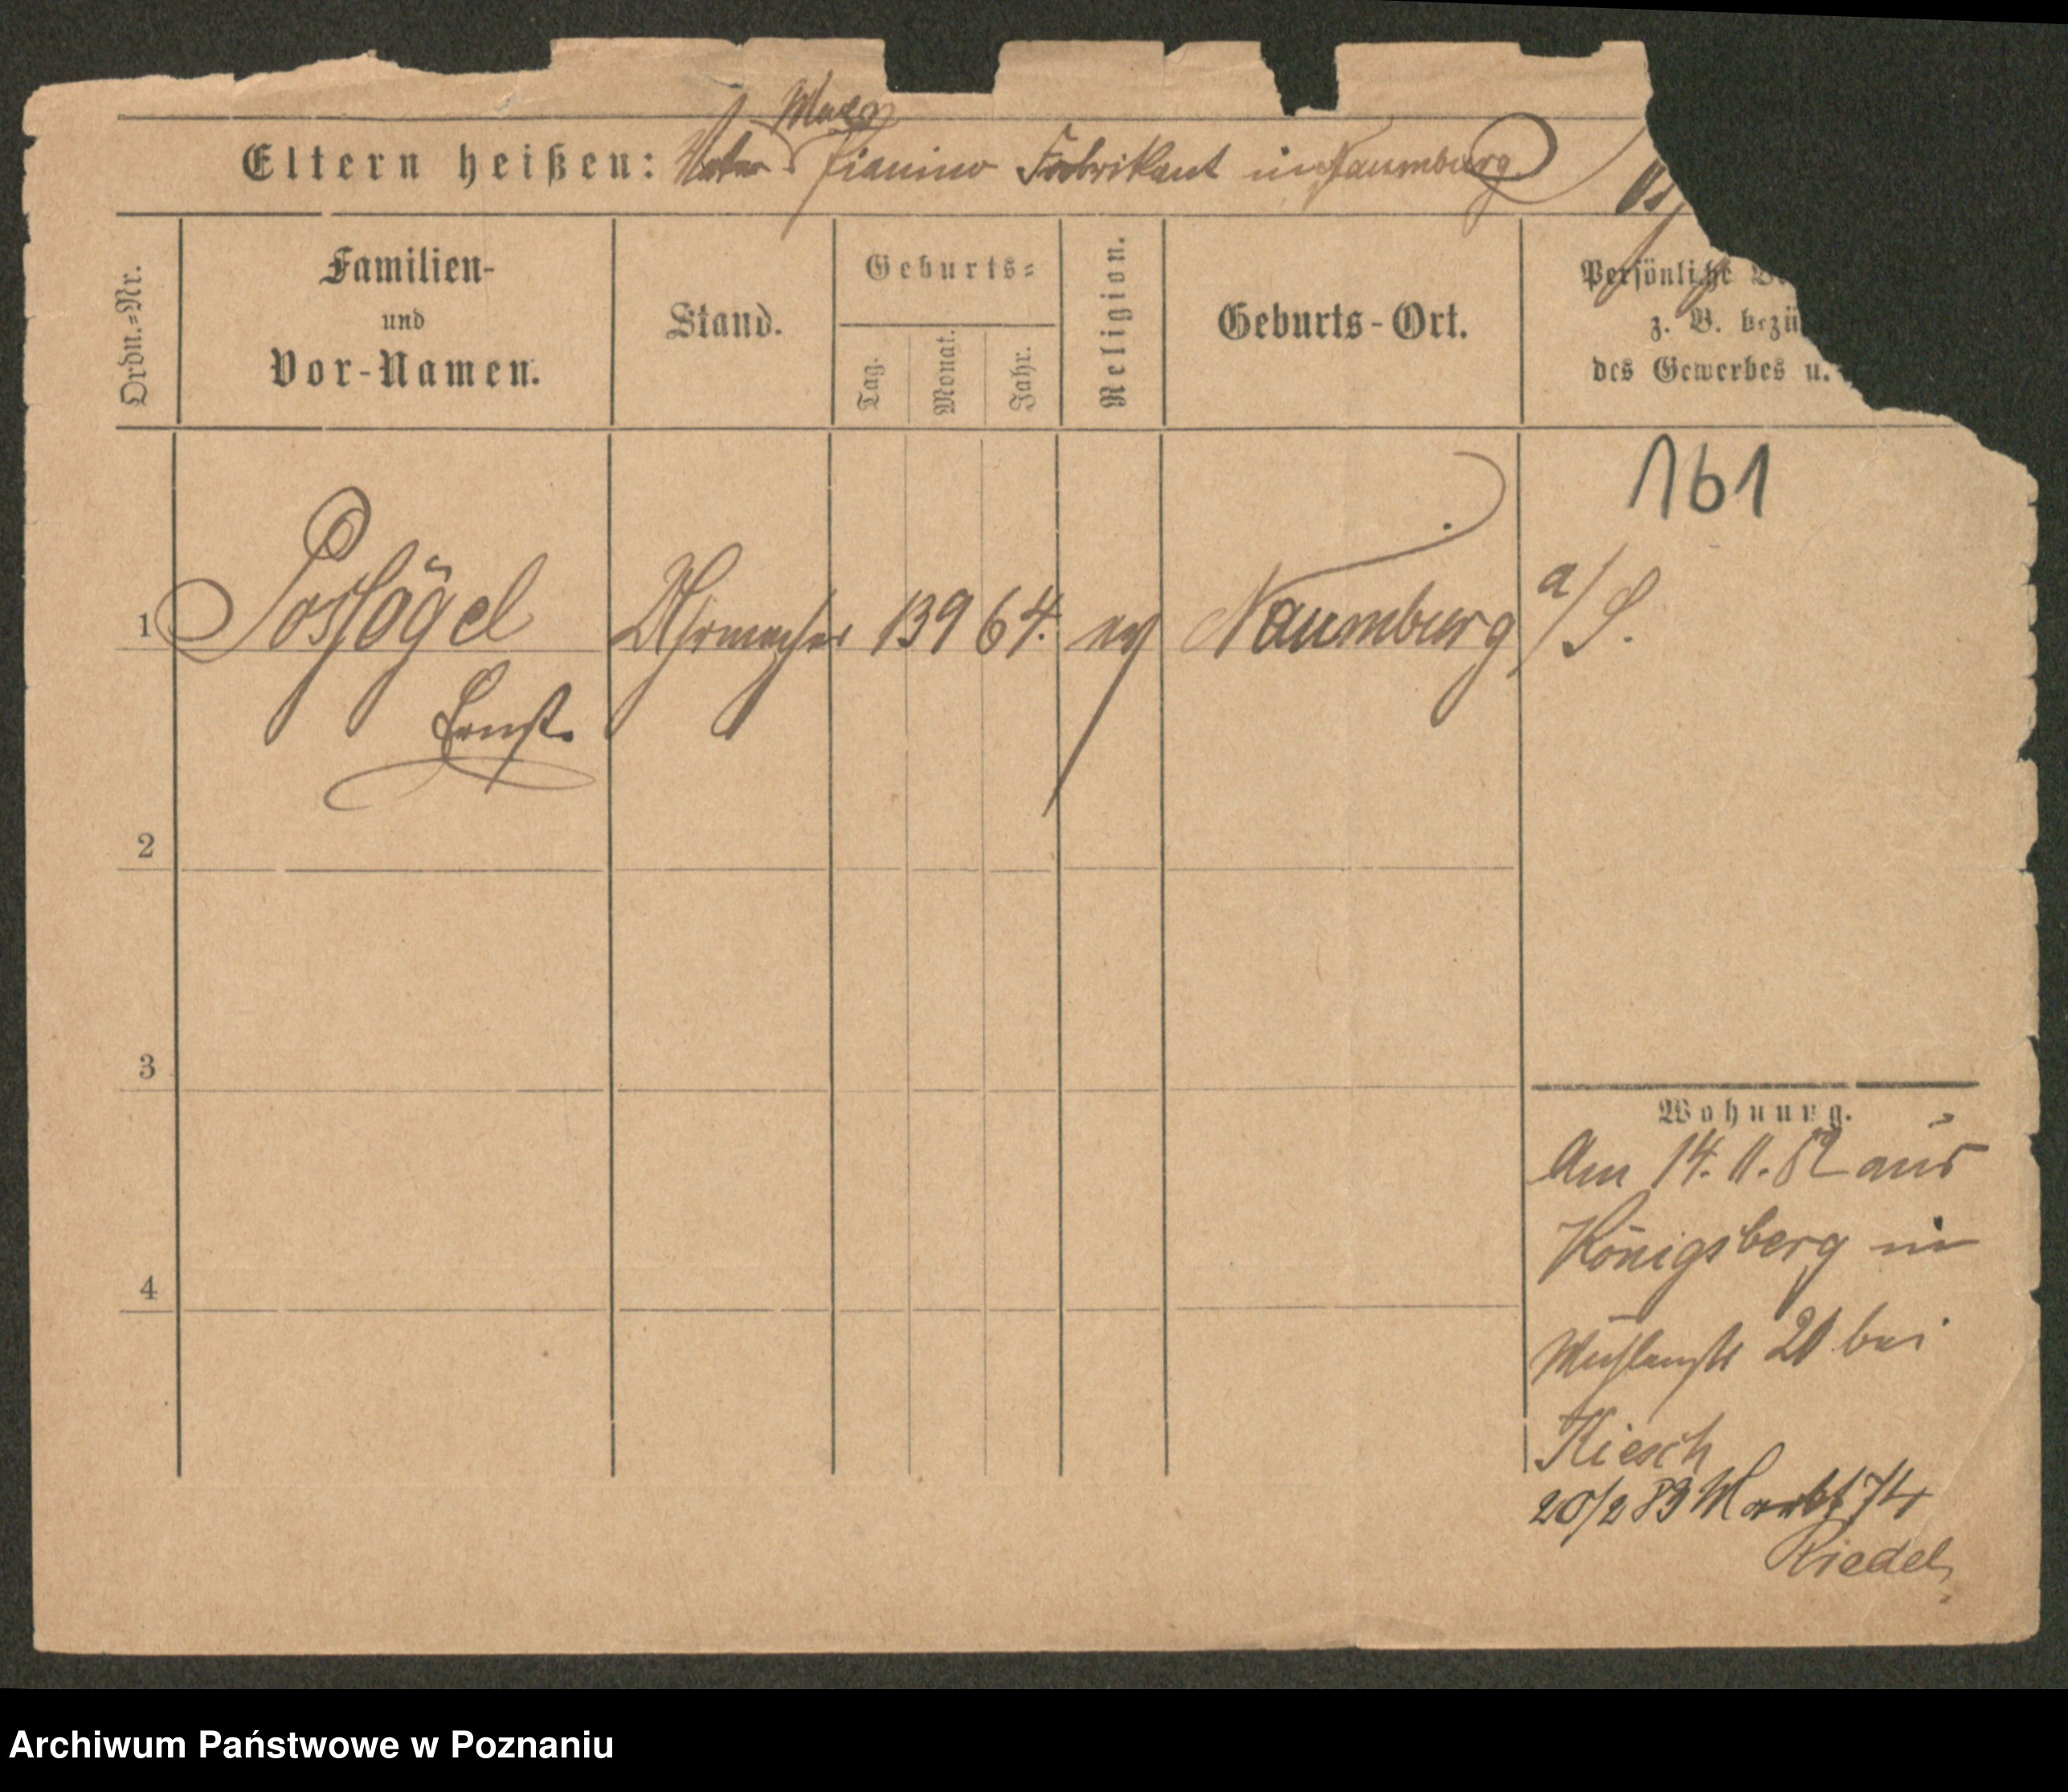 Eltern heißen: Vater Pianino Fabrikant in Naumburg
Ordn.=Nr.
Familien-
und
Vor-Namen.
Stand.
Geburts=
Tag.
Monat.
Jahr.
Religion.
Geburts-Ort.
Persönliche
z. B. bezü
des Gewerbes u.
161
1 Uhrmacher 13 9 64. ev Naumburg a/S.
Ernst.
2
3
4
Wohnung.
Am 14. 11. 82 aus
Königsberg in
Mühlenstr 21 bei
Kiesch
20/2 83 Markt 74
Riedel
Archiwum Państwowe w Poznaniu